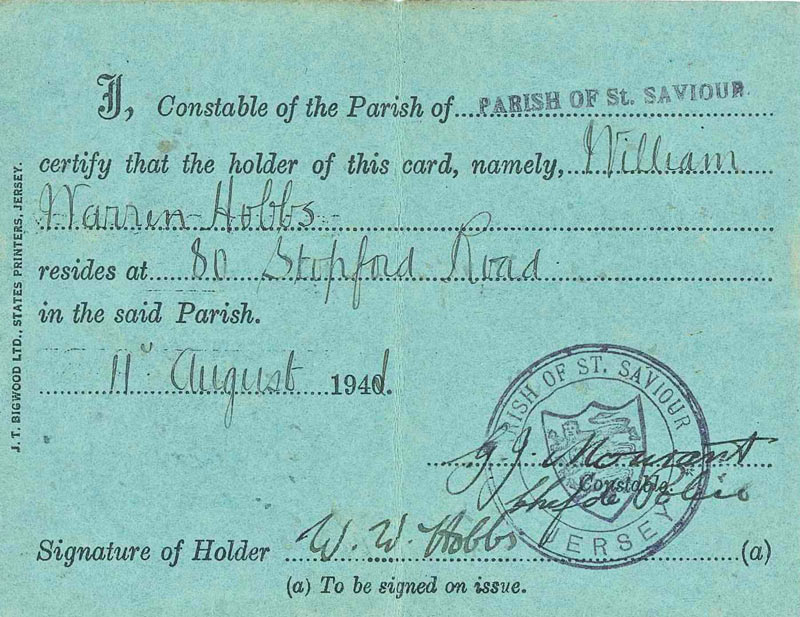 I, Constable of the Parish of PARISH OF St. SAVIOUR
certify that the holder of this card, namely, William
Warren Hobbs
resides at 80 Stopford Road
in the said Parish.
11 August 1941.
PARISH OF ST. SAVIOUR
JERSEY
Mourant
Constable.
Chef de Police
Signature of Holder W. W. Hobbs (a)
(a) To be signed on issue.
J. T. BIGWOOD LTD., STATES PRINTERS, JERSEY.